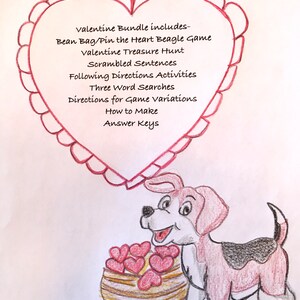 Valentine Bundle includes-
Bean Bag/Pin the Heart Beagle Game
Valentine Treasure Hunt
Scrambled Sentences
Following Directions Activities
Three Word Searches
Directions for Game Variations
How to Make
Answer Keys